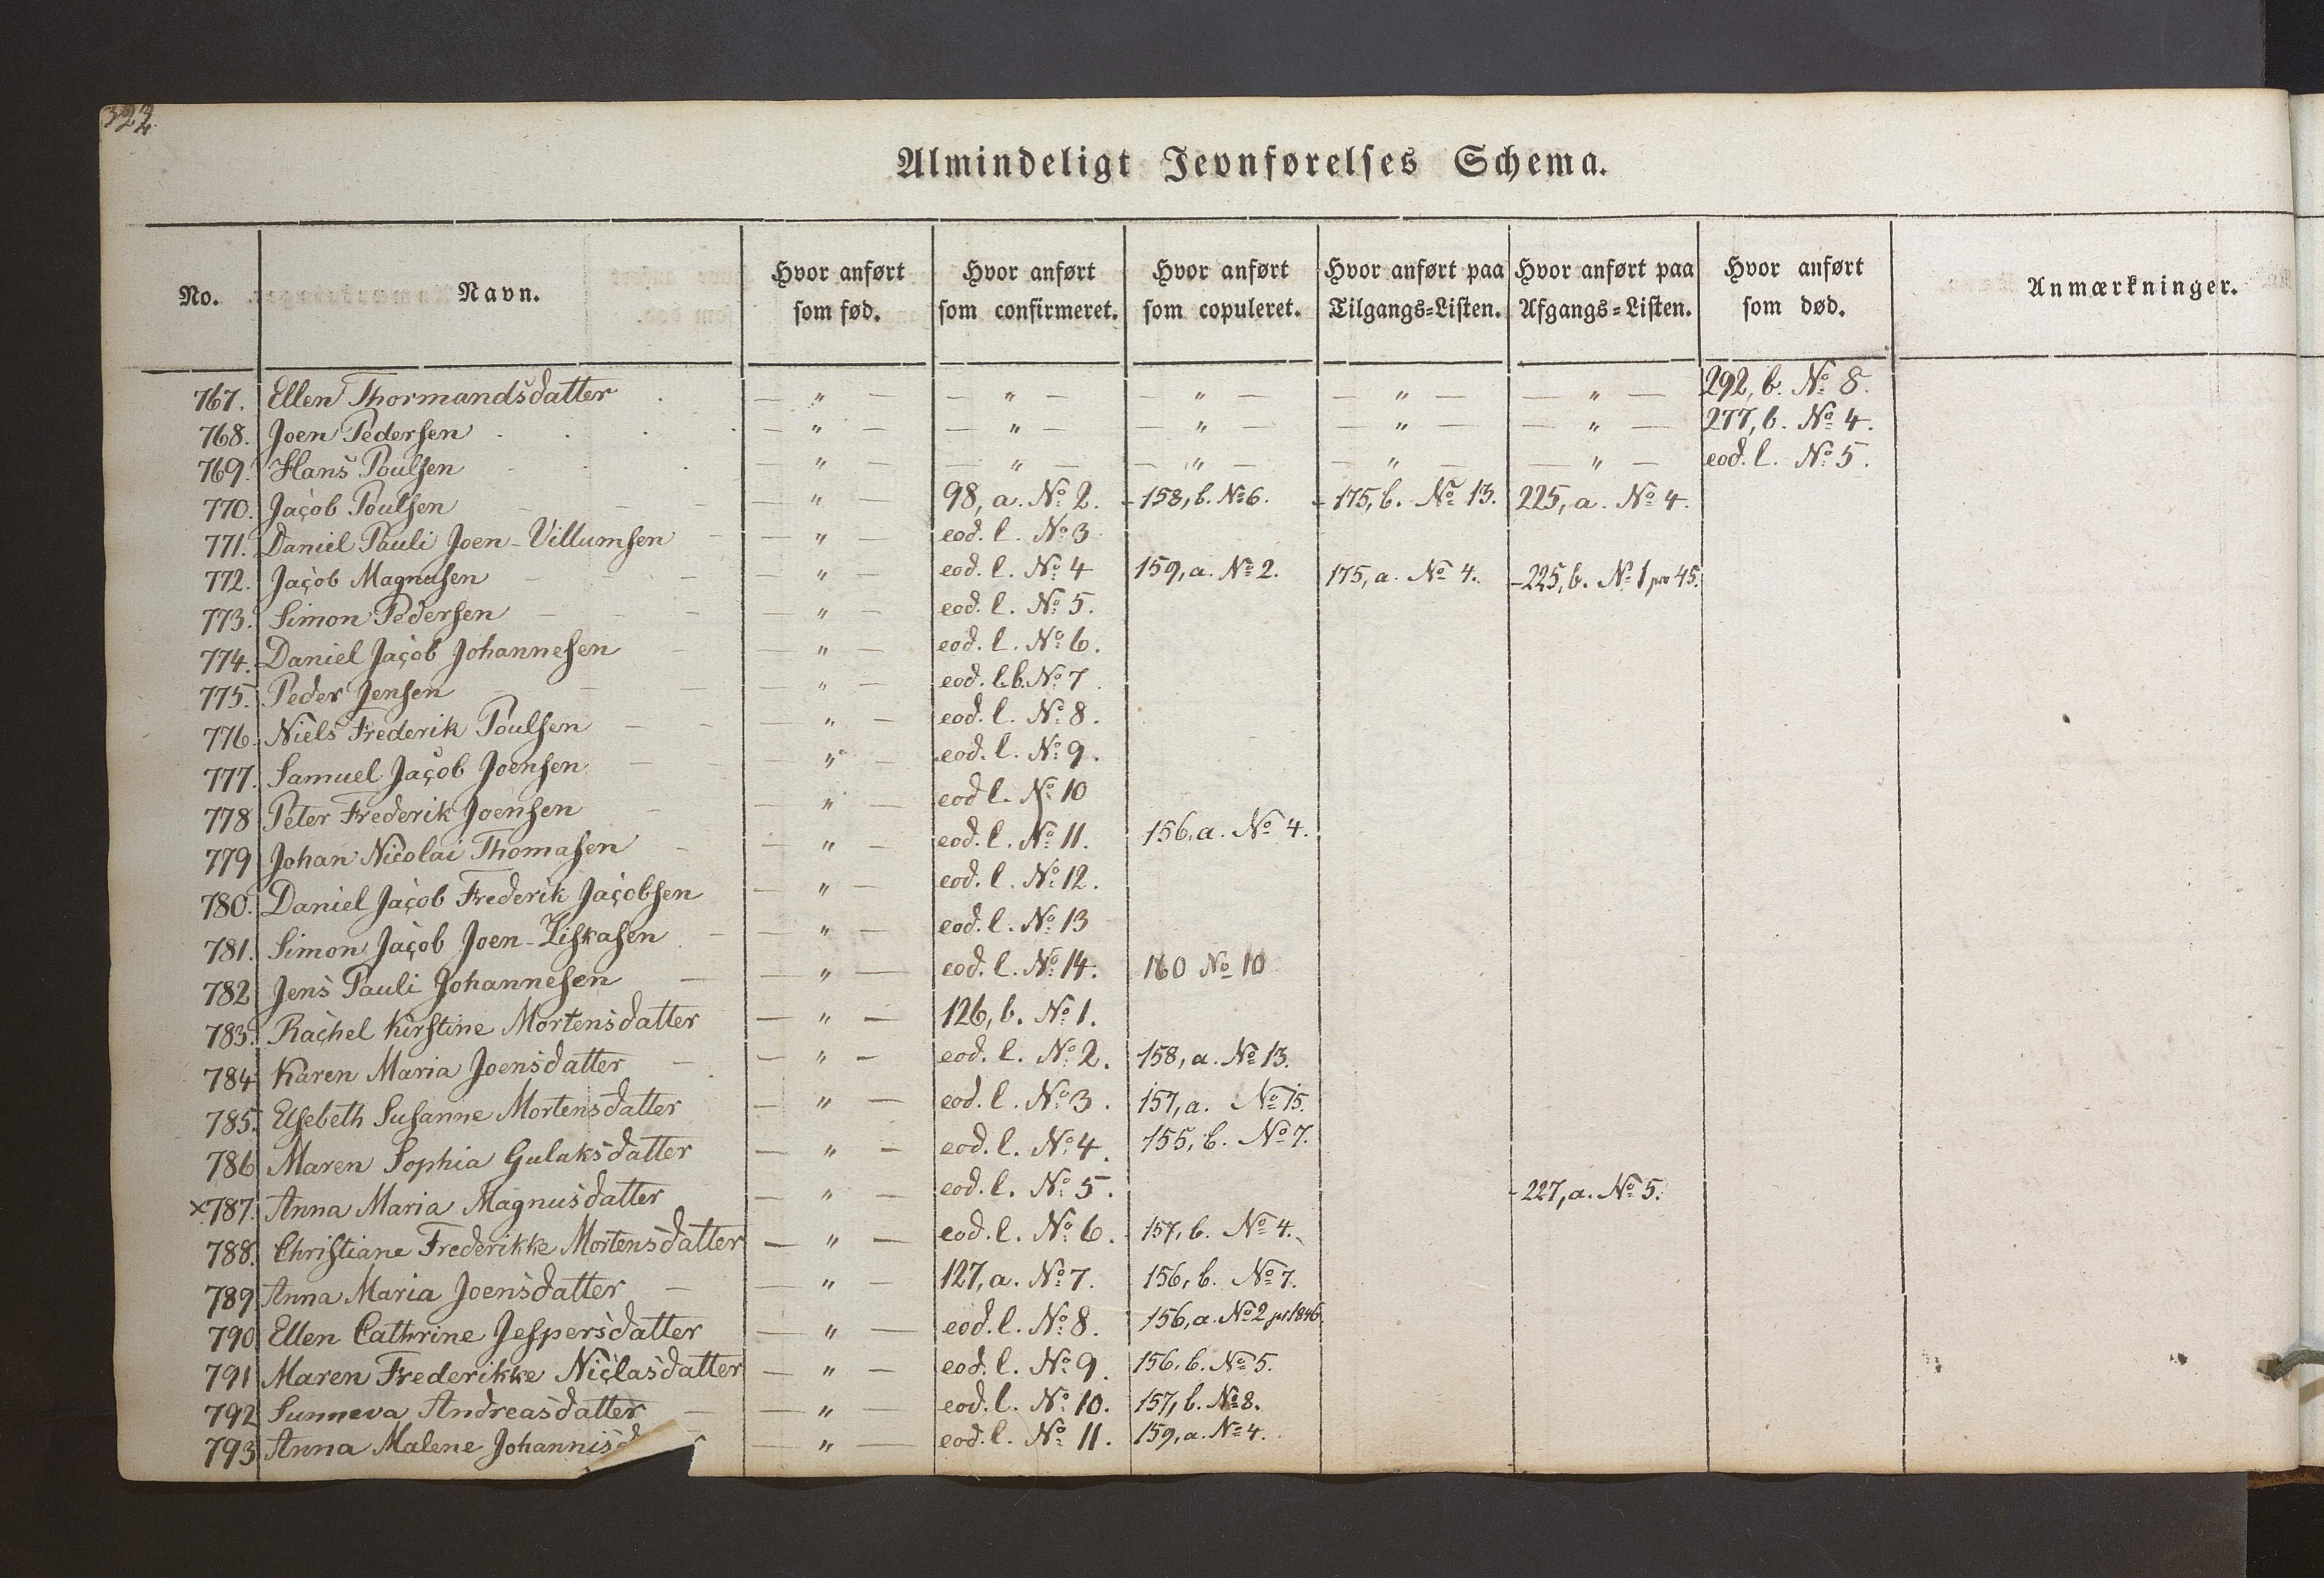 322
Almindeligt Jevnførelses Schema.
No. Navn. Hvor anført som fød. Hvor anført som confirmeret. Hvor anført som copuleret. Hvor anført paa Tilgangs=Listen. Hvor anført paa Afgangs=Listen. Hvor anført som død. Anmærkninger.
767. Ellen Thormandsdatter — " — — " — — " — — " — — " — 292, b. No 8.
768. Joen Pedersen — " — — " — — " — — " — — " — 277, b. No 4.
769. Hans Poulsen — " — — " — — " — — " — — " — eod. l. No 5.
770. Jacob Poulsen — " — 98, a. No 2. - 158, b. No 6. - 175, b. No 13. 225, a. No 4.
771. Daniel Pauli Joen-Villumsen — " — eod. l. No 3
772. Jacob Magnusen — " — eod. l. No 4 159, a. No 2. 175, a. No 4. - 225, b. No 1 pro 45.
773. Simon Pedersen — " — eod. l. No 5.
774. Daniel Jacob Johannesen — " — eod. l. No 6.
775. Peder Jensen — " — eod. l. b. No 7
776. Niels Frederik Poulsen — " — eod. l. No 8.
777. Samuel Jacob Joensen " — eod. l. No 9.
778 Peter Frederik Joensen — " — eod l. No 10
779 Johan Nicolai Thomasen — " — eod. l. No 11. 156, a. No 4.
780. Daniel Jacob Frederik Jacobsen — " — eod. l. No 12.
781. Simon Jacob Joen-Ziskasen — " — eod. l. No 13
782 Jens Pauli Johannesen — " — eod. l. No 14. 160 No 10
783. Rachel Kirstine Mortensdatter — " — 126, b. No 1.
784 Karen Maria Joensdatter — " — eod. l. No 2. 158, a. No 13.
785. Elsebeth Susanne Mortensdatter — " — eod. l. No 3. 157, a. No 15.
786 Maren Sophia Gulaksdatter — " — eod. l. No 4. 155, b. No 7.
×787. Anna Maria Magnusdatter — " — eod. l. No 5. - 227, a. No 5.
788. Christiane Frederikke Mortensdatter — " — eod. l. No 6. 157, b. No 4.
789 Anna Maria Joensdatter — " — 127, a. No 7. 156, b. No 7.
790 Ellen Cathrine Jespersdatter — " — eod. l. No 8. 156, a. No 2 pr 1846
791 Maren Frederikke Niclasdatter — " — eod. l. No 9. 156, b. No 5.
792 Sunneva Andreasdatter — " — eod. l. No 10. 157, b. No 8.
793 Anna Malene Johannisd — " — eod. l. No 11. 159, a. No 4.